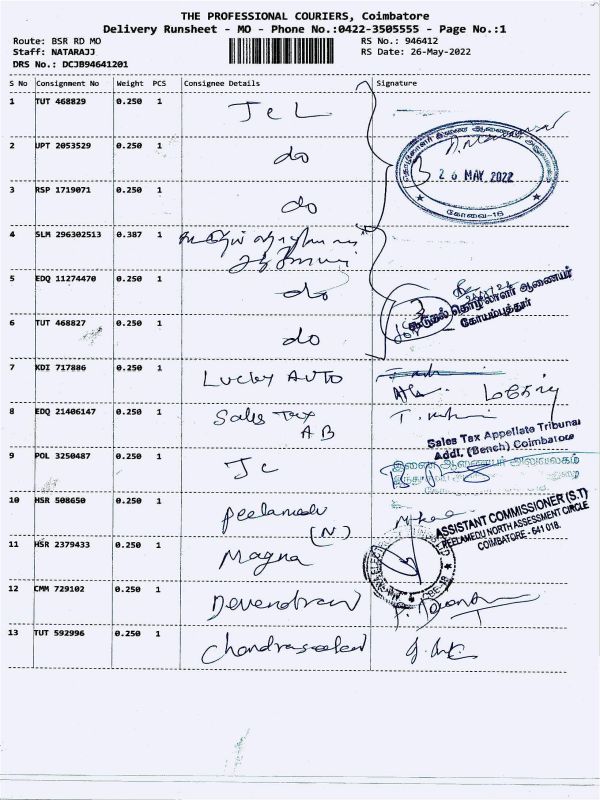 THE PROFESSIONAL COURIERS, Coimbatore
Delivery Runsheet - MO - Phone No.:0422-3505555 - Page No.:1
Route: BSR RD MO
Staff: NATARAJJ
DRS No.: DCJB94641201
RS No.: 946412
RS Date: 26-May-2022
S No Consignment No Weight PCS Consignee Details Signature
1 TUT 468829 0.250 1 J c L
2 UPT 2053529 0.250 1 do
3 RSP 1719071 0.250 1 do
26 MAY 2022
கோவை-18
4 SLM 296302513 0.387 1
5 EDQ 11274470 0.250 1 do
கூடுதல் தொழிலாளர் ஆணையர்
கோயம்புத்தூர்
6 TUT 468827 0.250 1 do
7 KDI 717886 0.250 1 Lucky AUTO
8 EDQ 21406147 0.250 1 Sales Tax
A B
Sales Tax Appellate Tribunal
Addl. (Bench) Coimbatore
9 POL 3250487 0.250 1 J c
இணை ஆணையர் அலுவலகம்
10 HSR 508650 0.250 1 peelamedu
(N)
ASSISTANT COMMISSIONER (S.T)
PEELAMEDU NORTH ASSESSMENT CIRCLE
COIMBATORE - 641 018.
11 HSR 2379433 0.250 1 Magna
12 CMM 729102 0.250 1 Devendran
13 TUT 592996 0.250 1